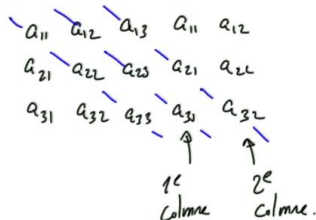 a11 a12 a13 a11 a12
a21 a22 a23 a21 a22
a31 a32 a33 a31 a32
1e 2e
Colonne Colonne.